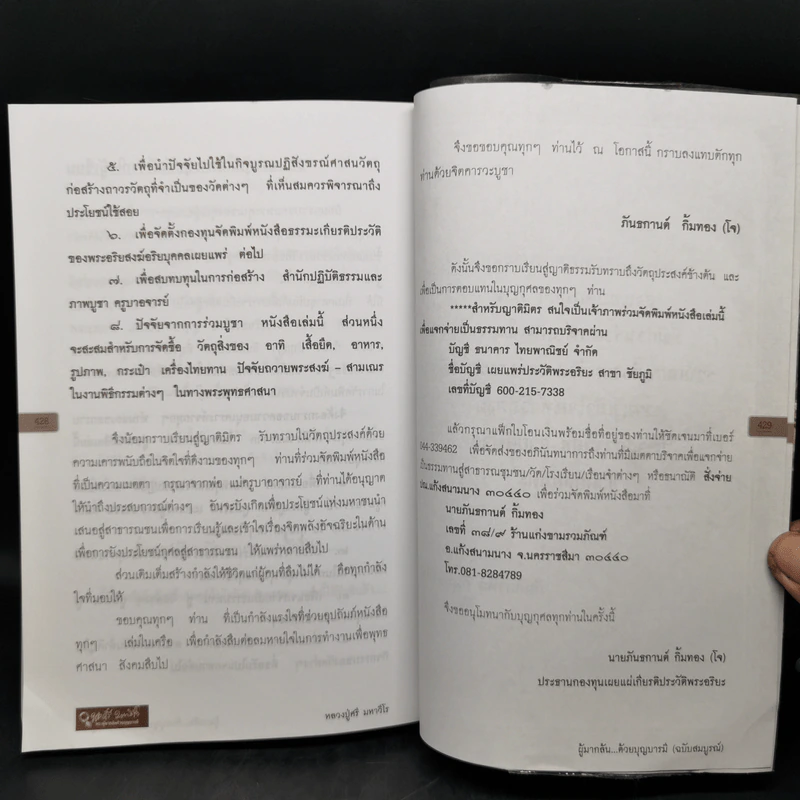 ๕. เพื่อนำปัจจัยไปใช้ในกิจบูรณปฏิสังขรณ์ศาสนวัตถุ
ก่อสร้างถาวรวัตถุที่จำเป็นของวัดต่างๆ ที่เห็นสมควรพิจารณาถึง
ประโยชน์ใช้สอย
๖. เพื่อจัดตั้งกองทุนจัดพิมพ์หนังสือธรรมะเกียรติประวัติ
ของพระอริยสงฆ์อริยบุคคลเผยแพร่ ต่อไป
๗. เพื่อสบทบทุนในการก่อสร้าง สำนักปฏิบัติธรรมและ
ภาพบูชา ครูบาอาจารย์
๘. ปัจจัยจากการร่วมบูชา หนังสือเล่มนี้ ส่วนหนึ่ง
จะสะสมสำหรับการจัดซื้อ วัตถุสิ่งของ อาทิ เสื้อยืด, อาหาร,
รูปภาพ, กระเป๋า เครื่องไทยทาน ปัจจัยถวายพระสงฆ์ – สามเณร
ในงานพิธีกรรมต่างๆ ในทางพระพุทธศาสนา
428
จึงน้อมกราบเรียนสู่ญาติมิตร รับทราบในวัตถุประสงค์ด้วย
ความเคารพนับถือในจิตใจที่ดีงามของทุกๆ ท่านที่ร่วมจัดพิมพ์หนังสือ
ที่เป็นความเมตตา กรุณาจากพ่อ แม่ครูบาอาจารย์ ที่ท่านได้อนุญาต
ให้นำถึงประสบการณ์ต่างๆ อันจะบังเกิดเพื่อประโยชน์แห่งมหาชนนำ
เสนอสู่สาธารณชนเพื่อการเรียนรู้และเข้าใจเรื่องจิตพลังอัจฉริยะในด้าน
เพื่อการยังประโยชน์กุศลสู่สาธารณชน ให้แพร่หลายสืบไป
ส่วนเติมเต็มสร้างกำลังให้ชีวิตแก่ผู้คนที่ลืมไม่ได้ คือทุกกำลัง
ใจที่มอบให้
ขอบคุณทุกๆ ท่าน ที่เป็นกำลังแรงใจที่ช่วยอุปถัมภ์หนังสือ
ทุกๆ เล่มในเครือ เพื่อกำลังสืบต่อลมหายใจในการทำงานเพื่อพุทธ
ศาสนา สังคมสืบไป
หลวงปู่ศรี มหาวีโร
จึงขอขอบคุณทุกๆ ท่านไว้ ณ โอกาสนี้ กราบลงแทบตักทุก
ท่านด้วยจิตคารวะบูชา
ภันธกานต์ กิ้มทอง (โจ)
ดังนั้นจึงขอกราบเรียนสู่ญาติธรรมรับทราบถึงวัตถุประสงค์ข้างต้น และ
เพื่อเป็นการตอบแทนในบุญกุศลของทุกๆ ท่าน
*****สำหรับญาติมิตร สนใจเป็นเจ้าภาพร่วมจัดพิมพ์หนังสือเล่มนี้
เพื่อแจกจ่ายเป็นธรรมทาน สามารถบริจาคผ่าน
บัญชี ธนาคาร ไทยพาณิชย์ จำกัด
ชื่อบัญชี เผยแพร่ประวัติพระอริยะ สาขา ชัยภูมิ
เลขที่บัญชี 600-215-7338
429
แล้วกรุณาแฟ็กใบโอนเงินพร้อมชื่อที่อยู่ของท่านให้ชัดเจนมาที่เบอร์
044-339462 เพื่อจัดส่งของอภินันทนาการถึงท่านที่มีเมตตาบริจาคเพื่อแจกจ่าย
เป็นธรรมทานสู่สาธารณชุมชน/วัด/โรงเรียน/เรือนจำต่างๆ หรือธนาณัติ สั่งจ่าย
ปณ.แก้งสนามนาง ๓๐๔๔๐ เพื่อร่วมจัดพิมพ์หนังสือมาที่
นายภันธกานต์ กิ้มทอง
เลขที่ ๓๘/๙ ร้านแก่งขามรวมภัณฑ์
อ.แก้งสนามนาง จ.นครราชสีมา ๓๐๔๔๐
โทร.081-8284789
จึงขออนุโมทนากับบุญกุศลทุกท่านในครั้งนี้
นายภันธกานต์ กิ้มทอง (โจ)
ประธานกองทุนเผยแผ่เกียรติประวัติพระอริยะ
ผู้มากล้น...ด้วยบุญบารมี (ฉบับสมบูรณ์)